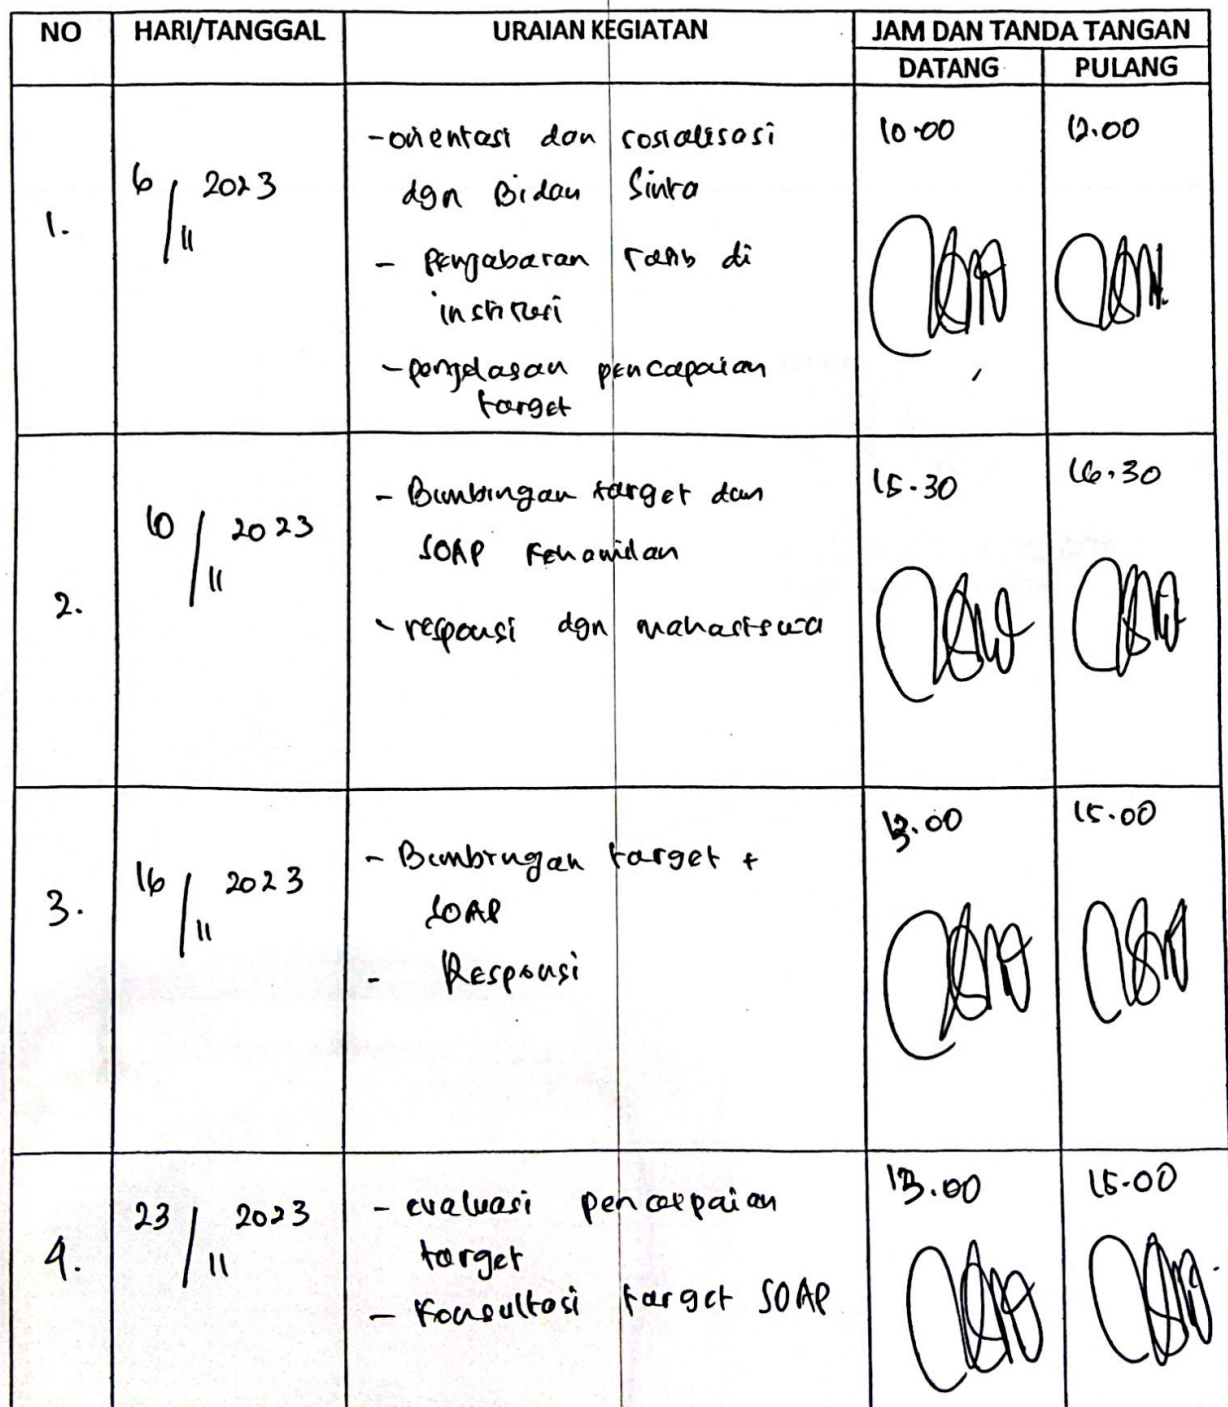 NO HARI/TANGGAL URAIAN KEGIATAN JAM DAN TANDA TANGAN
DATANG PULANG
1. 6/11 2023
-orientasi dan sosialisasi
dgn Bidan Sinta
10.00 12.00
- Pengabaran di
institusi
-penjelasan pencapaian
target
2. 10/11 2023
- Bimbingan target dan
SOAP Kehamilan
- responsi dgn mahasiswa
15.30 16.30
3. 16/11 2023
- Bimbingan target +
SOAP
- Responsi
13.00 15.00
4. 23/11 2023
- evaluasi pencapaian
target
- Konsultasi target SOAP
13.00 15.00